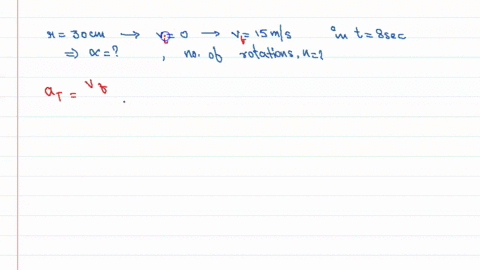 r = 30cm → vᵢ = 0 → v_f = 15 m/s in t = 8sec
⇒ α = ? , no. of rotations, n = ?
a_T = v_f